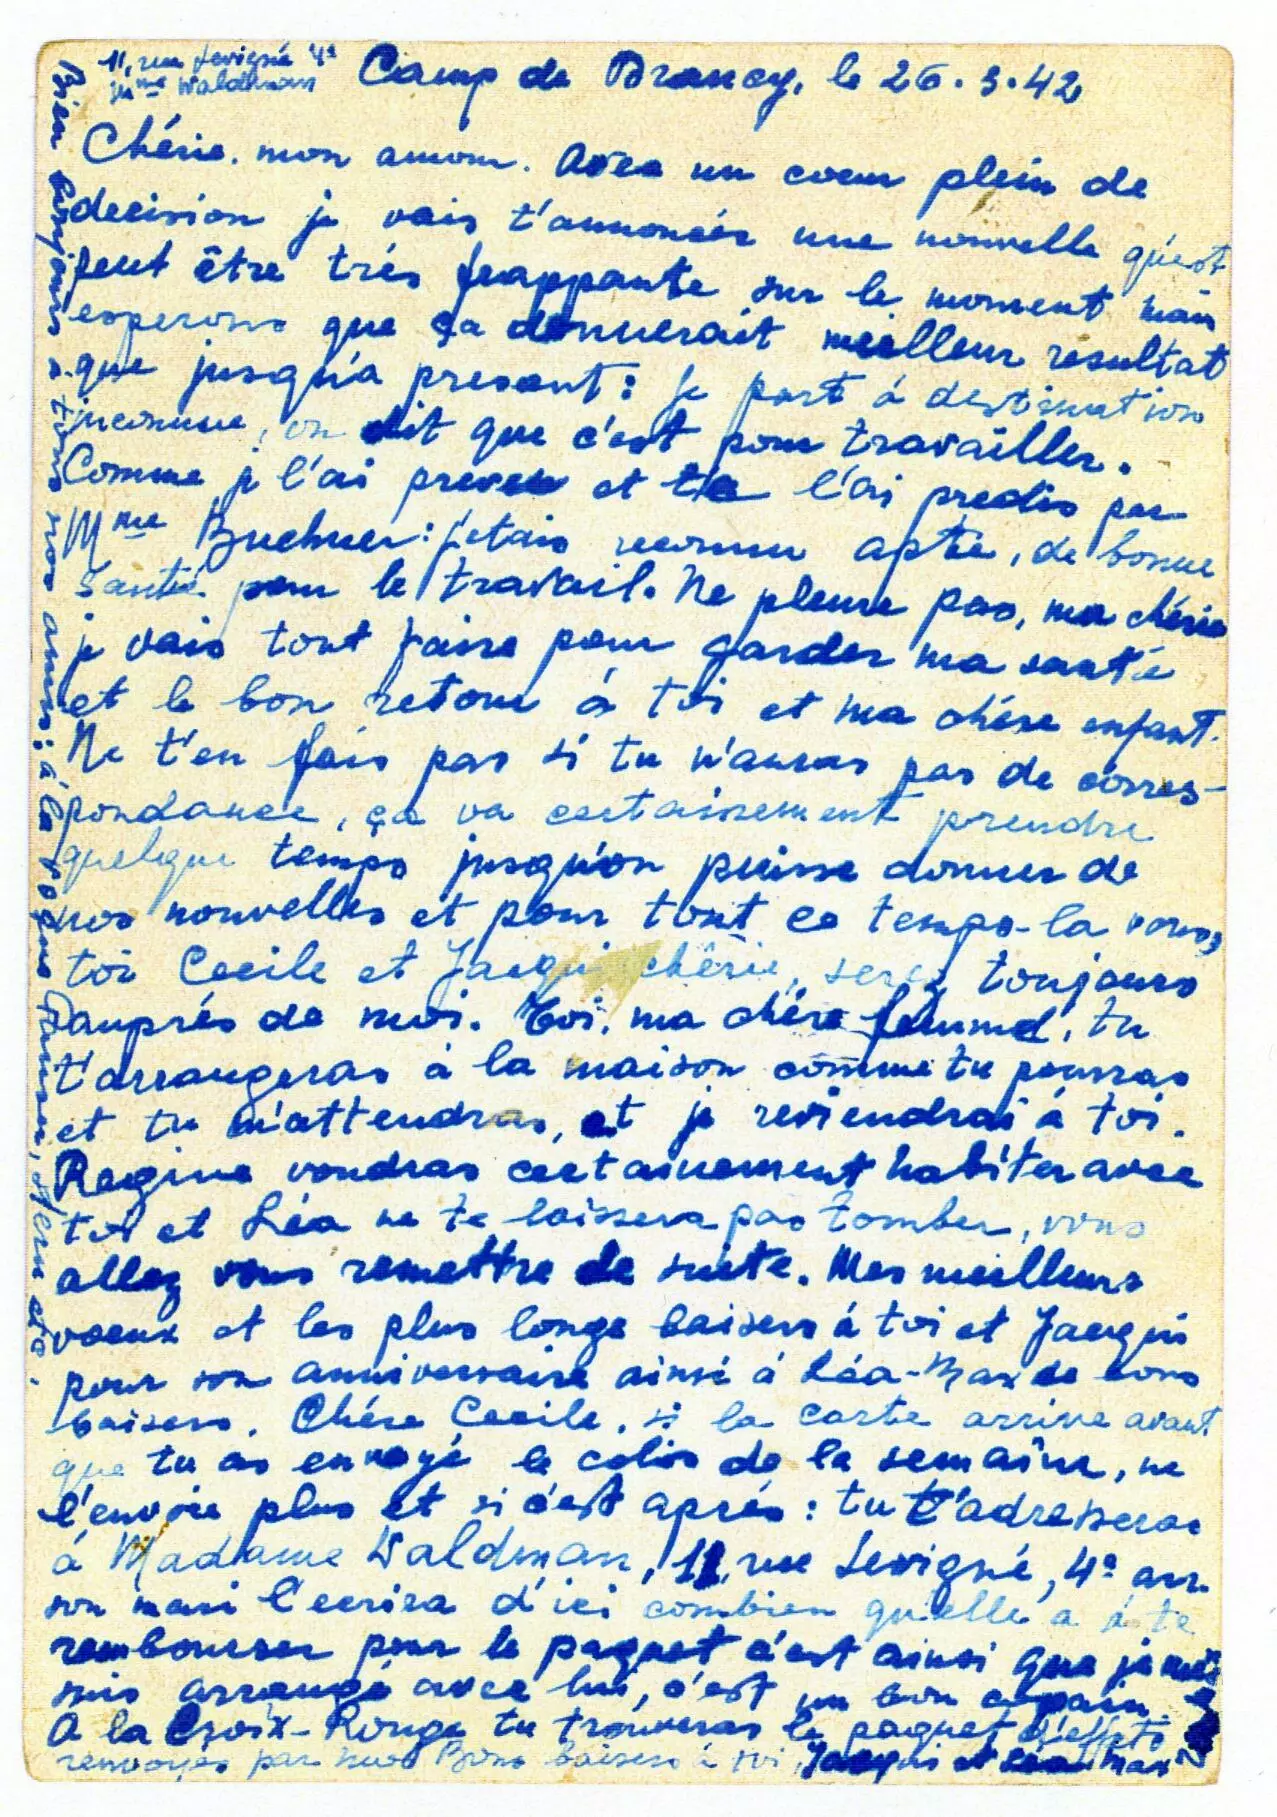 11, rue Sevigné 4ª
Mme Waldmann
Camp de Drancy, le 26.3.42
Chérie. mon amour. Avec un coeur plein de
decision je vais t'annoncér une nouvelle qu'est
peut être trés frappante sur le moment mais
esperons que ça donnerait meilleur resultat
que jusqu'a present: je part á destination
inconnue, on dit que c'est pour travailler.
Comme je l'ai prevu et te l'ai predis par
Mme Buchner: j'etais reconnu apte, de bonne
santé pour le travail. Ne pleure pas, ma chérie
je vais tout faire pour garder ma santé
et le bon retour á toi et ma chére enfant.
Ne t'en fais pas si tu n'auras pas de corres-
pondance, ça va certainement prendre
quelque temps jusqu'on puisse donner de
nos nouvelles et pour tout ce temps-la vous,
toi Cecile et Jacqui chérie, serez toujours
auprés de moi. Toi, ma chére femme, tu
t'arrangeras á la maison comme tu pourras
et tu m'attendras, et je reviendrai á toi.
Regine voudras certainement habiter avec
toi et Léa ne te laissera pas tomber, vous
allez vous remettre de suite. Mes meilleurs
voeux et les plus longs baisers á toi et Jacqui
pour son anniversaire ainsi á Léa-Max de bons
baisers. Chére Cecile, si la carte arrive avant
que tu as envoyé le colis de la semaine, ne
l'envoie plus et si c'est aprés: tu t'adresseras
á Madame Waldman, 11, rue Sevigné, 4ª arr.
son mari l'ecrira d'ici combien qu'elle a á te
rembourser pour le paquet c'est ainsi que je me
suis arrangé avec lui, c'est un bon copain
A la Croix-Rouge tu trouveras le paquet d'effets
renvoyés par moi Bons baisers á toi, Jacqui et Léa Max
Bien bonjour á tous nos amis: á la